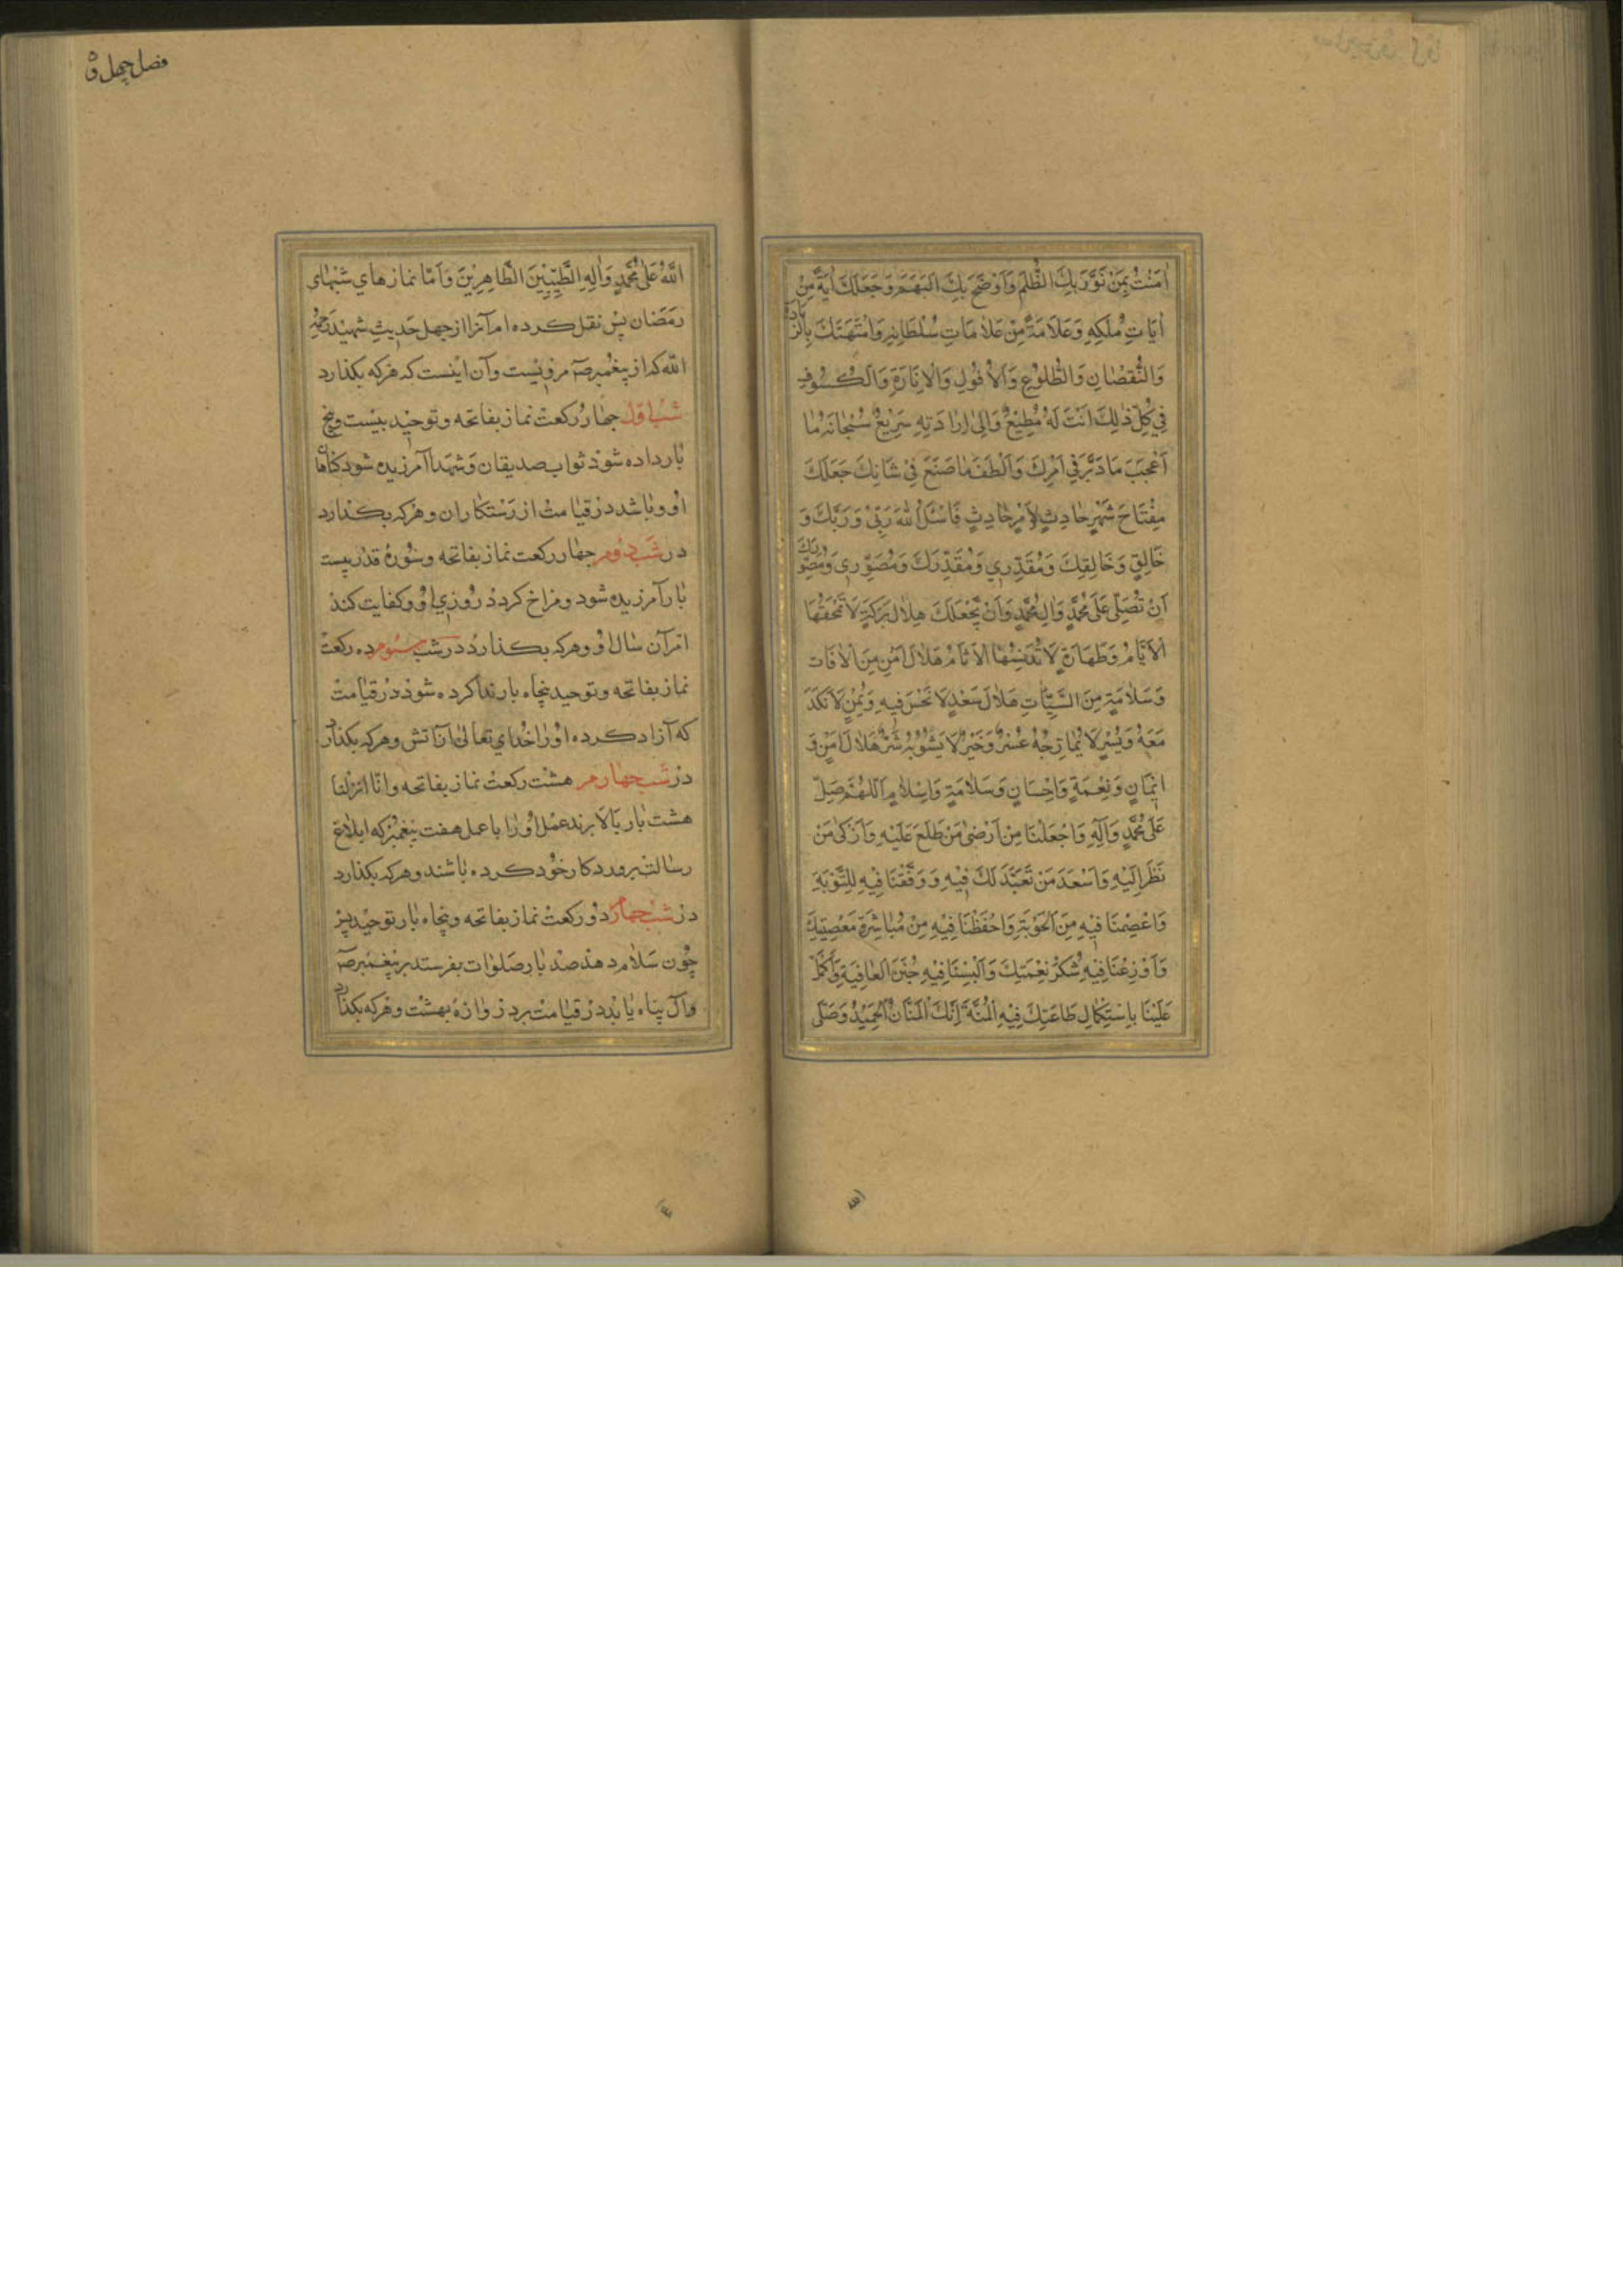 اٰمَنْتُ بِمَنْ نَوَّرَ بِكَ الظُّلَمَ وَاَوْضَحَ بِكَ الْبُهَمَ وَجَعَلَكَ اٰيَةً مِنْ
اٰيَاتِ مُلْكِهِ وَعَلَامَةً مِنْ عَلَامَاتِ سُلْطَانِهِ وَامْتَهَنَكَ بِالزِّيَادَةِ
وَالنُّقْصَانِ وَالطُّلُوعِ وَالْاُفُولِ وَالْاِنَارَةِ وَالْكُسُوفِ
فِي كُلِّ ذٰلِكَ اَنْتَ لَهُ مُطِيعٌ وَاِلٰى اِرَادَتِهِ سَرِيعٌ سُبْحَانَهُ مَا
اَعْجَبَ مَا دَبَّرَ فِي اَمْرِكَ وَاَلْطَفَ مَا صَنَعَ فِي شَانِكَ جَعَلَكَ
مِفْتَاحَ شَهْرٍ حَادِثٍ لِاَمْرٍ حَادِثٍ فَاَسْئَلُ اللّٰهَ رَبِّي وَرَبَّكَ وَ
خَالِقِي وَخَالِقَكَ وَمُقَدِّرِي وَمُقَدِّرَكَ وَمُصَوِّرِي وَمُصَوِّرَكَ
اَنْ تُصَلِّيَ عَلٰى مُحَمَّدٍ وَاٰلِ مُحَمَّدٍ وَاَنْ يَجْعَلَكَ هِلَالَ بَرَكَةٍ لَا تَمْحَقُهَا
الْاَيَّامُ وَطَهَارَةٍ لَا تُدَنِّسُهَا الْاٰثَامُ هِلَالَ اَمْنٍ مِنَ الْاٰفَاتِ
وَسَلَامَةٍ مِنَ السَّيِّئَاتِ هِلَالَ سَعْدٍ لَا نَحْسَ فِيهِ وَيُمْنٍ لَا نَكَدَ
مَعَهُ وَيُسْرٍ لَا يُمَازِجُهُ عُسْرٌ وَخَيْرٍ لَا يَشُوبُهُ شَرٌّ هِلَالَ اَمْنٍ وَ
اِيمَانٍ وَنِعْمَةٍ وَاِحْسَانٍ وَسَلَامَةٍ وَاِسْلَامٍ اَللّٰهُمَّ صَلِّ
عَلٰى مُحَمَّدٍ وَاٰلِهِ وَاجْعَلْنَا مِنْ اَرْضٰى مَنْ طَلَعَ عَلَيْهِ وَاَزْكٰى مَنْ
نَظَرَ اِلَيْهِ وَاَسْعَدَ مَنْ تَعَبَّدَ لَكَ فِيهِ وَوَفِّقْنَا فِيهِ لِلتَّوْبَةِ
وَاعْصِمْنَا فِيهِ مِنَ الْحَوْبَةِ وَاحْفَظْنَا فِيهِ مِنْ مُبَاشَرَةِ مَعْصِيَتِكَ
وَاَوْزِعْنَا فِيهِ شُكْرَ نِعْمَتِكَ وَاَلْبِسْنَا فِيهِ جُنَنَ الْعَافِيَةِ وَاَتْمِمْ
عَلَيْنَا بِاسْتِكْمَالِ طَاعَتِكَ فِيهِ الْمِنَّةَ اِنَّكَ الْمَنَّانُ الْحَمِيدُ وَصَلَّى
فصل چهل و
اللّٰهُ عَلٰى مُحَمَّدٍ وَاٰلِهِ الطَّيِّبِينَ الطَّاهِرِينَ وَاَمّا نمازهاي شبهاي
رمضان پس نقل كرده ام آنرا از چهل حديث شهيد رحمه
الله كه از پيغمبر صم مرويست و آن اينست كه هر كه بكذارد
شب اول چهار ركعت نماز بفاتحه و توحيد بيست و پنج
بار داده شود ثواب صديقان و شهدا آمرزيده شود كناهان
او و باشد در قيامت از رستكاران و هر كه بكذارد
در شب دوم چهار ركعت نماز بفاتحه و سوره قدر بيست
بار آمرزيده شود و فراخ كردد روزي او و كفايت كند
امر آن سال او و هر كه بكذارد در شب سوم ده ركعت
نماز بفاتحه و توحيد پنجاه بار ندا كرده شود در قيامت
كه آزاد كرده او را خداي تعالى از آتش و هر كه بكذارد
در شب چهارم هشت ركعت نماز بفاتحه و انا انزلنا
هشت بار بالا برند عمل او را با عمل هفت پيغمبر كه ابلاغ
رسالت پروردكار خود كرده باشند و هر كه بكذارد
در شب دو ركعت نماز بفاتحه و پنجاه بار توحيد پس
چون سلام دهد صد بار صلوات بفرستد بر پيغمبر صم
و آل پناه يابد در قيامت بر دروازه بهشت و هر كه بكذارد